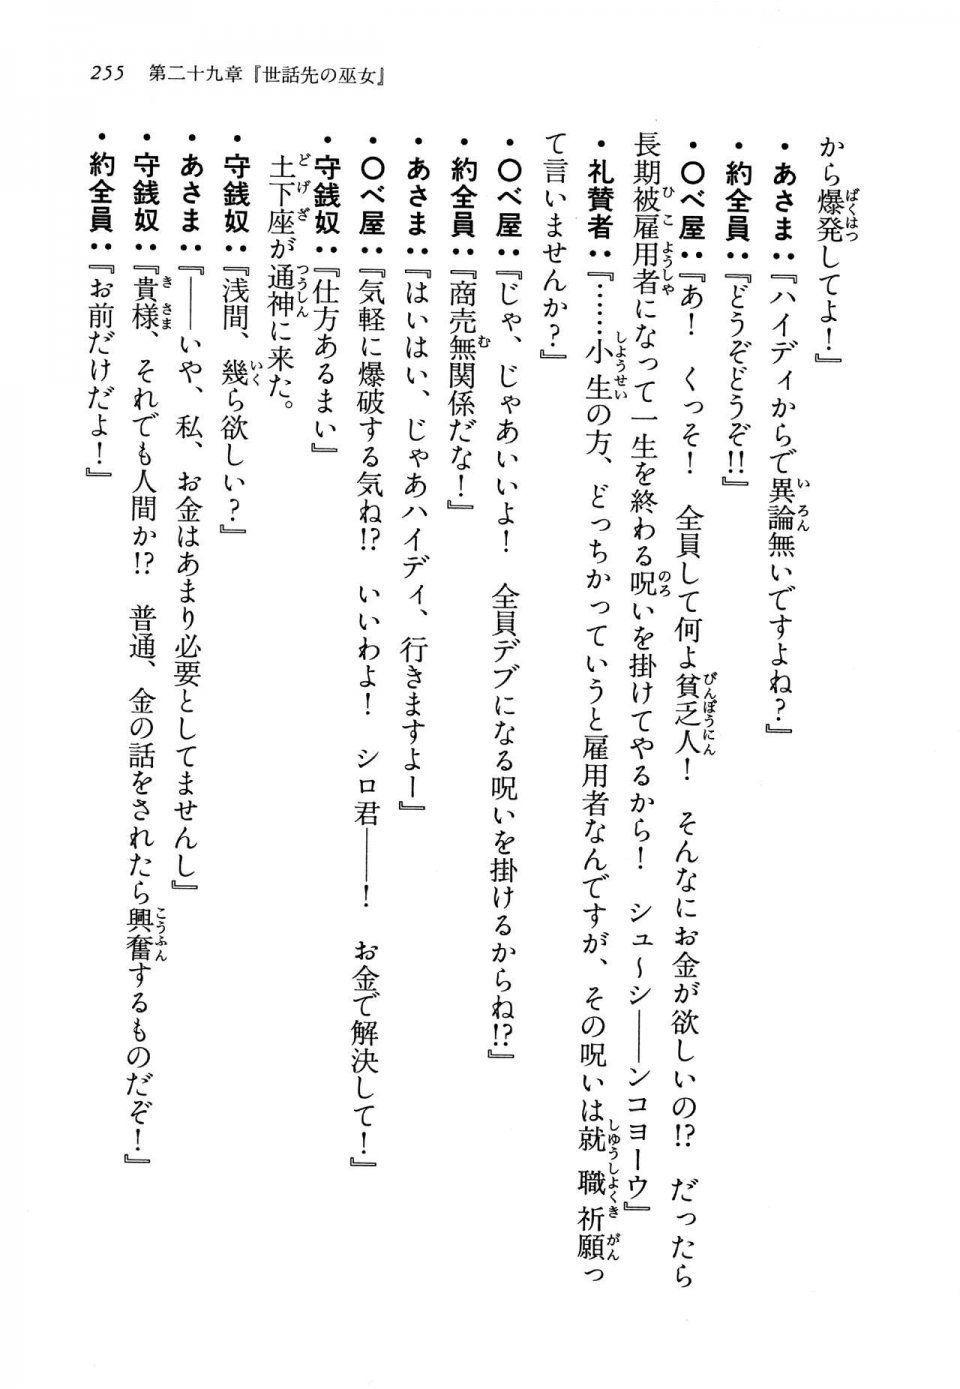 255　第二十九章『世話先の巫女』
から爆発してよ！』
・あさま：『ハイディからで異論無いですよね？』
・約全員：『どうぞどうぞ!!』
・〇べ屋：『あ！　くっそ！　全員して何よ貧乏人！　そんなにお金が欲しいの!?　だったら
長期被雇用者になって一生を終わる呪いを掛けてやるから！　シュ～シ――ンコヨーウ』
・礼賛者：『……小生の方、どっちかっていうと雇用者なんですが、その呪いは就職祈願っ
て言いませんか？』
・〇べ屋：『じゃ、じゃあいいよ！　全員デブになる呪いを掛けるからね!?』
・約全員：『商売無関係だな！』
・あさま：『はいはい、じゃあハイディ、行きますよー』
・〇べ屋：『気軽に爆破する気ね!?　いいわよ！　シロ君――！　お金で解決して！』
・守銭奴：『仕方あるまい』
土下座が通神に来た。
・守銭奴：『浅間、幾ら欲しい？』
・あさま：『――いや、私、お金はあまり必要としてませんし』
・守銭奴：『貴様、それでも人間か!?　普通、金の話をされたら興奮するものだぞ！』
・約全員：『お前だけだよ！』